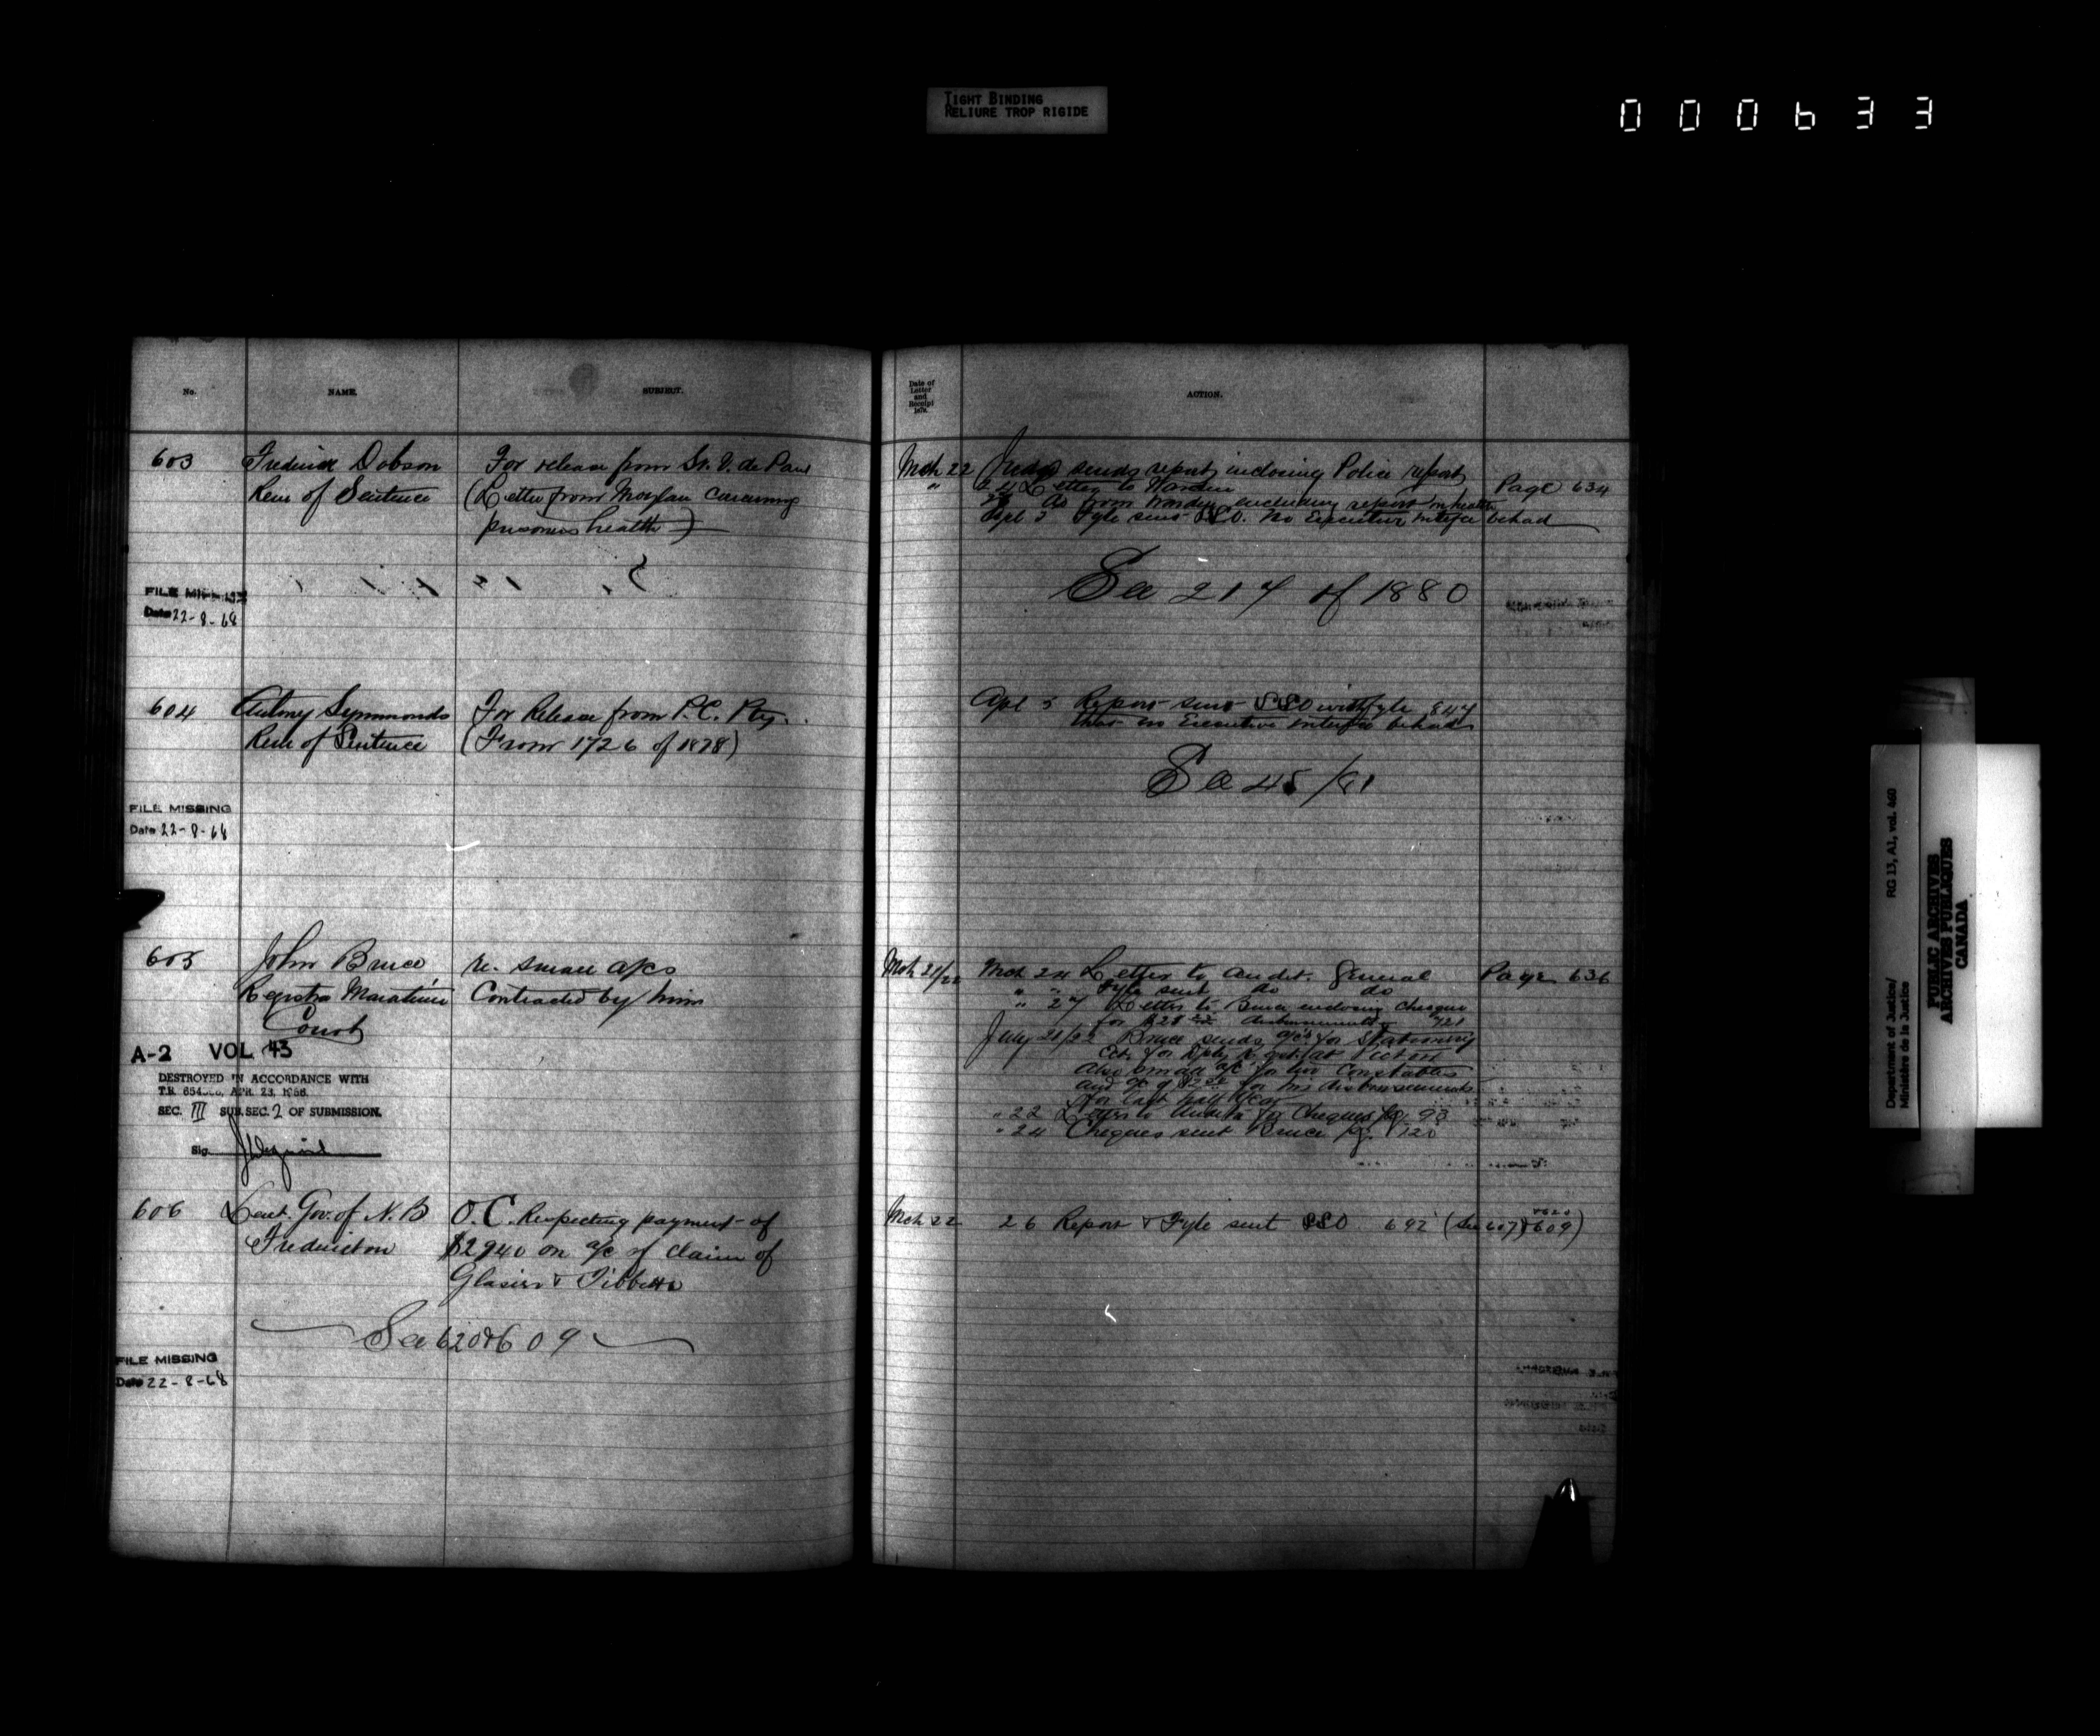 TIGHT BINDING
RELIURE TROP RIGIDE
000633
No.
NAME.
SUBJECT.
603
Frederick Dobson
For release from St. V. de Paul
Rem of Sentence
(Letter from Moylan concerning
prisoners health)
FILE MISSING
Date 22-8-68
604
Symmonds
For Release from P.C. Pty.
Rem of Sentence
(From 1726 of 1878)
FILE MISSING
Date 22-8-68
605
John Bruce
re. small a/cs
Registrar Maratime
Contracted by him
Court
A-2 VOL 43
DESTROYED IN ACCORDANCE WITH
T.B. APR. 23, 1956.
SEC. III SUB. SEC. 2 OF SUBMISSION.
Sig.
606
Lieut. Gov. of N.B
O.C. Respecting payment of
Fredericton
$2940 on a/c of claim of
Glasier & Tibbetts
See 620 & 609
FILE MISSING
Date 22-8-68
Date of
Letter
and
Receipt
187
ACTION.
Mch 22
Judge sends report inclosing Police report
" 24 Letter to Warden
Page 634
Do from Warden enclosing report on health
Apl 3 Fyle sent SSO. No Executive interfce behad
See 217 of 1880
Apl 5 Report sent SSO with fyle 847
that no Executive interfce behad
See 45/81
Mch 21/22
Mch 24 Letter to Audit. General
Page 636
" " Fyle sent do do
" 27 Letter to Bruce enclosing Cheque
for $28 disbursements
July 21/22 Bruce sends a/cs for Stationery
&c. for Dpty Regist at Picton
Also small a/c for two Constables
and a/c of for his disbursements
for last half year
" 22 Letter to Auditor for Cheques pg. 93
" 24 Cheques sent Bruce pg. 120
Mch 22
26 Report & Fyle sent SSO 692 (See 607 & 609)
& 620
RG 13, A1, vol. 460
Department of Justice/
Ministère de la Justice
PUBLIC ARCHIVES
ARCHIVES PUBLIQUES
CANADA